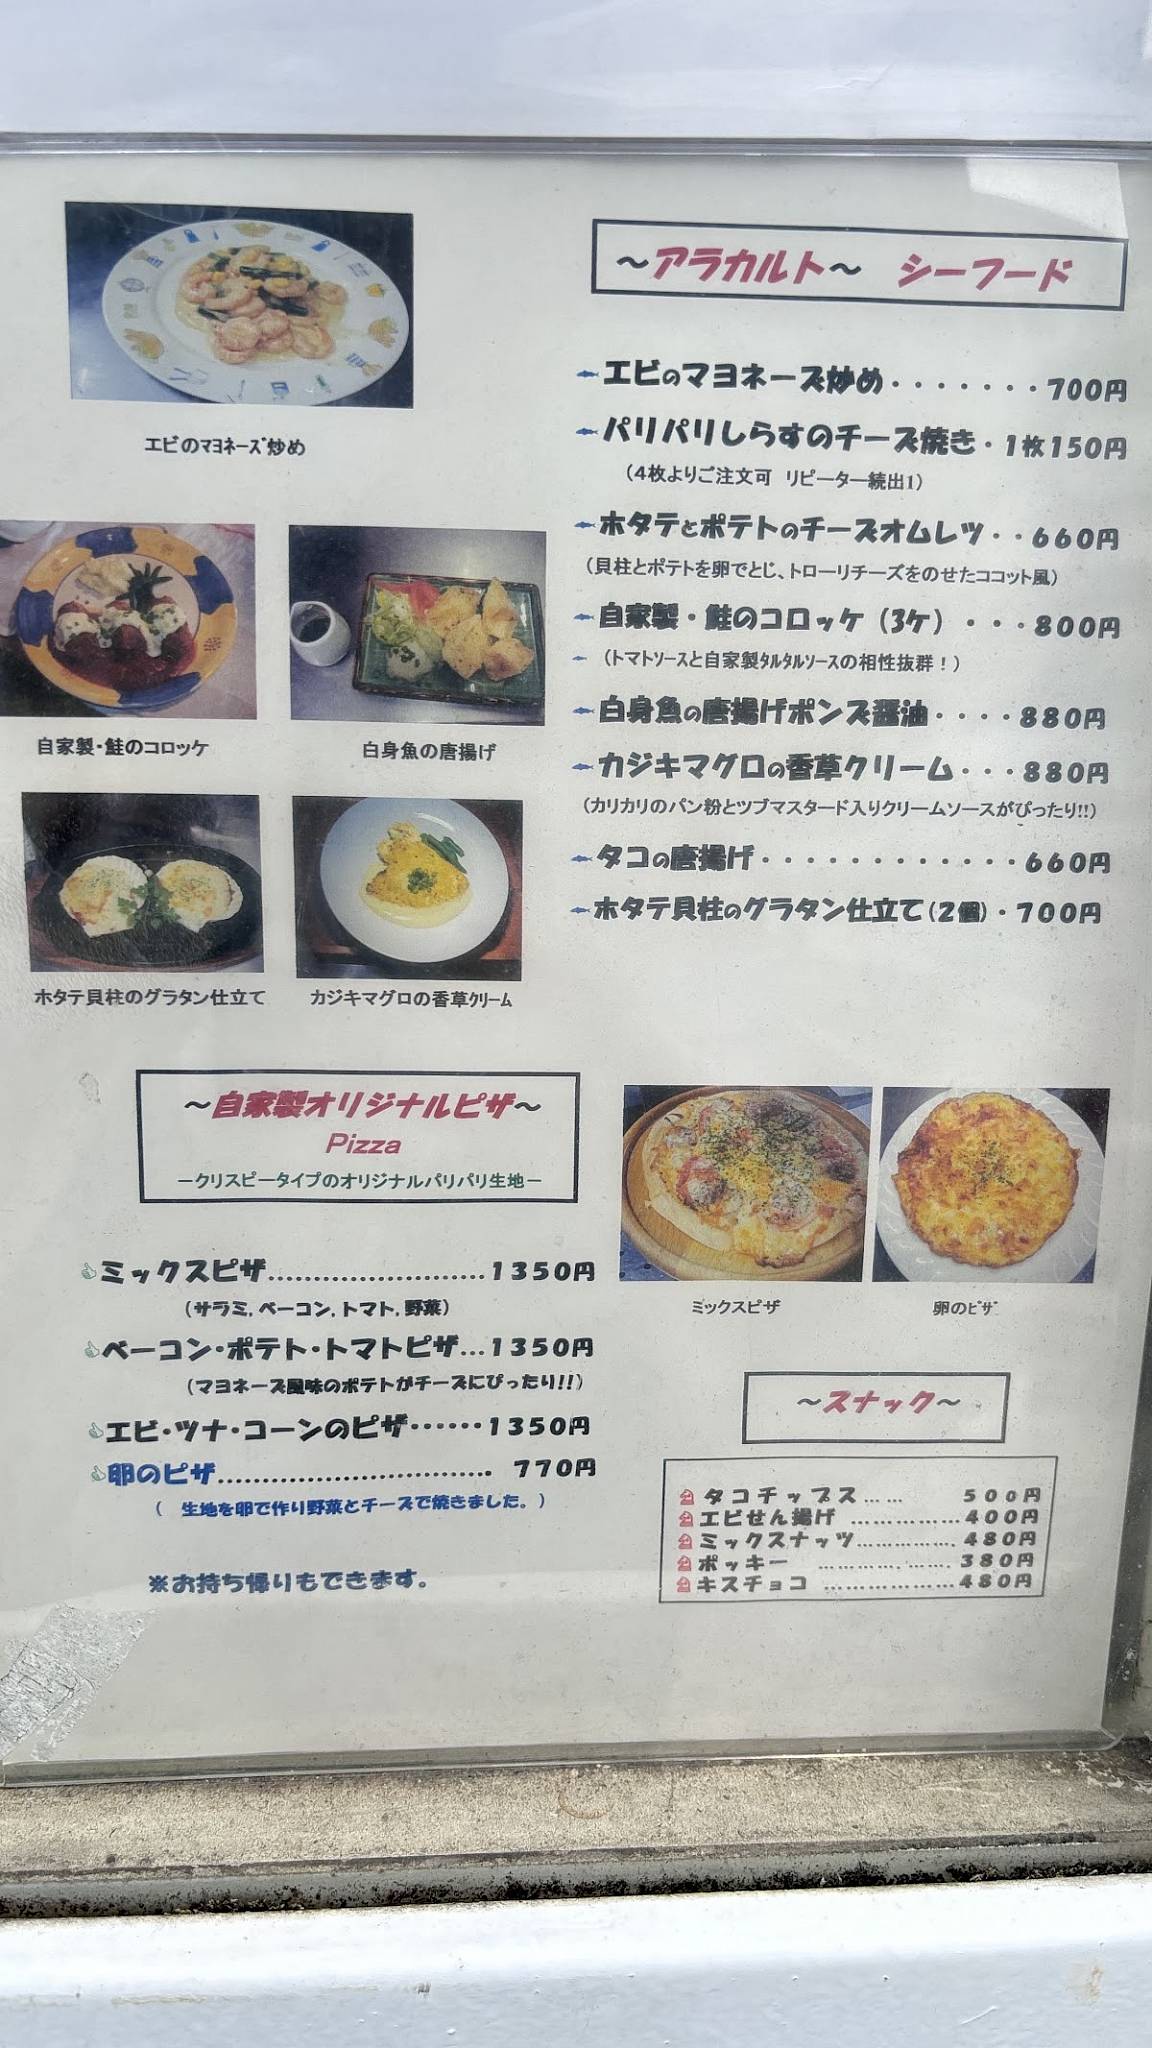 ～アラカルト～　シーフード
エビのマヨネーズ炒め・・・・・・・700円
パリパリしらすのチーズ焼き・1枚150円
（4枚よりご注文可　リピーター続出!）
ホタテとポテトのチーズオムレツ・・660円
（貝柱とポテトを卵でとじ、トローリチーズをのせたココット風）
自家製・鮭のコロッケ（3ケ）・・・800円
（トマトソースと自家製タルタルソースの相性抜群！）
白身魚の唐揚げポンズ醤油・・・・880円
カジキマグロの香草クリーム・・・880円
（カリカリのパン粉とツブマスタード入りクリームソースがぴったり!!）
タコの唐揚げ・・・・・・・・・・・・・660円
ホタテ貝柱のグラタン仕立て（2個）・700円
エビのマヨネーズ炒め
自家製・鮭のコロッケ
白身魚の唐揚げ
ホタテ貝柱のグラタン仕立て
カジキマグロの香草クリーム
～自家製オリジナルピザ～
Pizza
－クリスピータイプのオリジナルパリパリ生地－
ミックスピザ........................1350円
（サラミ，ベーコン，トマト，野菜）
ベーコン・ポテト・トマトピザ...1350円
（マヨネーズ風味のポテトがチーズにぴったり!!）
エビ・ツナ・コーンのピザ・・・・・・1350円
卵のピザ............................... 770円
（　生地を卵で作り野菜とチーズで焼きました。）
※お持ち帰りもできます。
ミックスピザ
卵のピザ
～スナック～
タコチップス……　500円
エビせん揚げ ……………400円
ミックスナッツ……………480円
ポッキー ……………380円
キスチョコ ………………480円